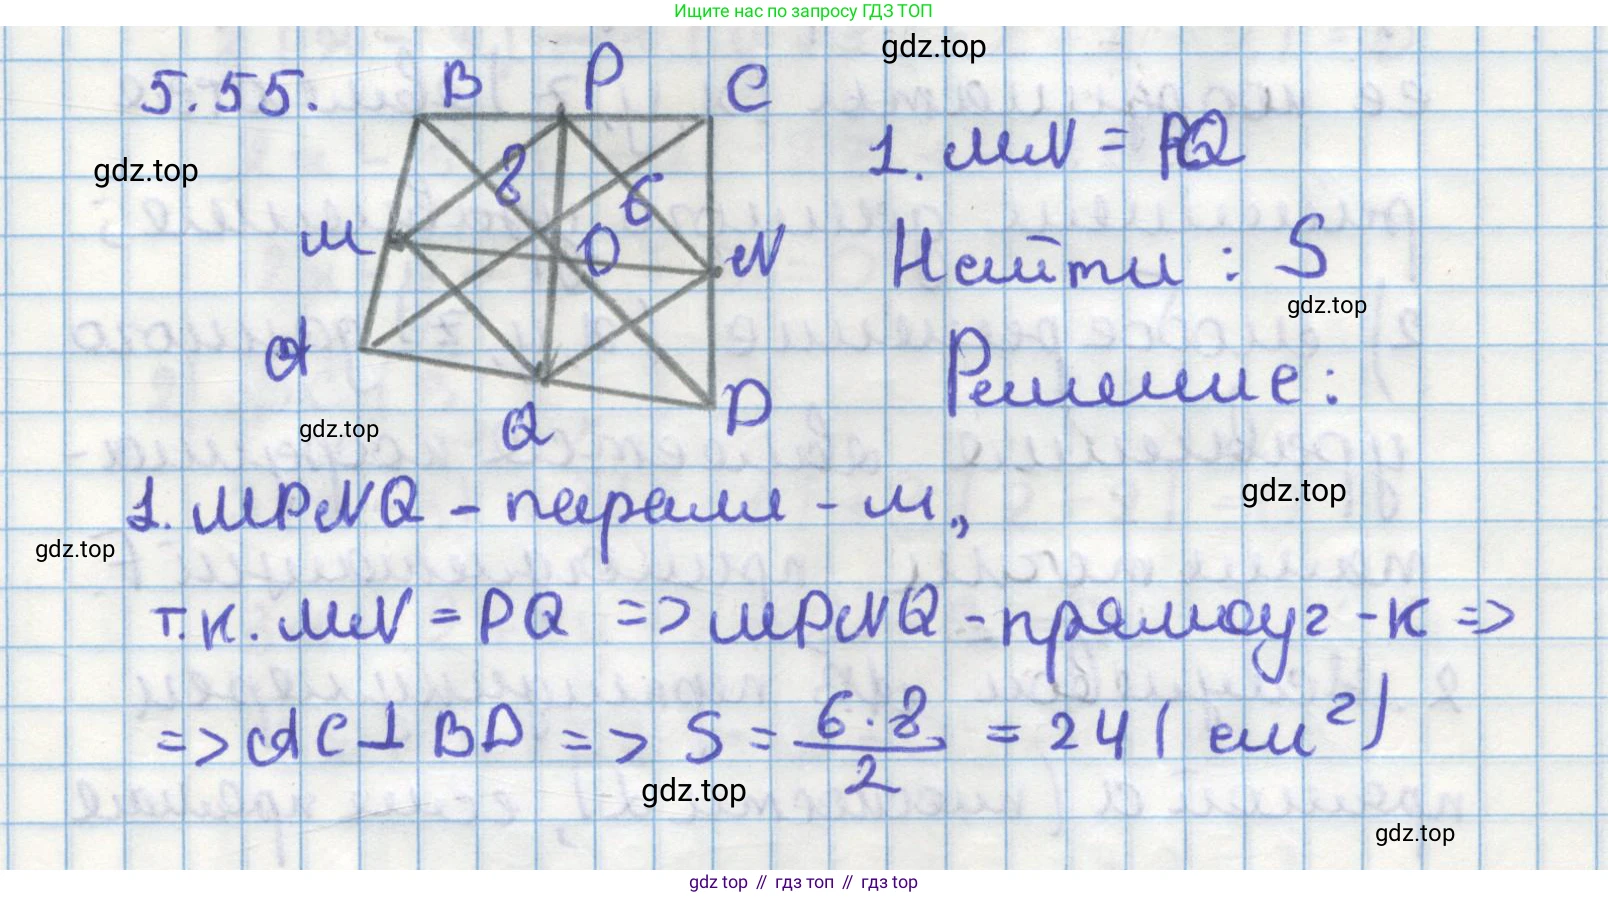 Ищите нас по запросу ГДЗ ТОП
gdz.top
5.55.
B P C
gdz.top
8 6
1. MN = PQ
M O N
Найти : S
gdz.top
A
Решение:
Q D
gdz.top
gdz.top
1. MPNQ - паралл - м,
gdz.top
т.к. MN = PQ => MPNQ - прямоуг - к =>
=> AC ⊥ BD => S = 6·8/2 = 24 (см²)
gdz.top
gdz.top
gdz top // гдз топ // gdz top